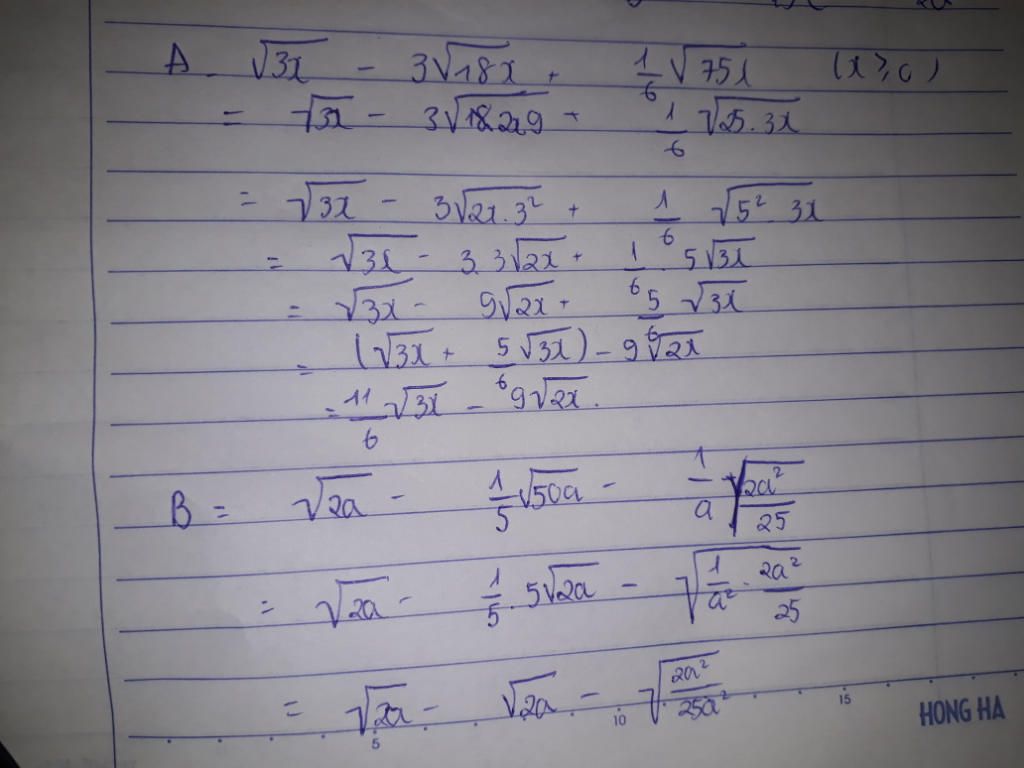 A = √3x - 3√18x + 1/6 √75x (x ≥ 0)
= √3x - 3√2x9 + 1/6 √25.3x
= √3x - 3√2x.3² + 1/6 √5².3x
= √3x - 3.3√2x + 1/6 . 5√3x
= √3x - 9√2x + 5/6 √3x
= (√3x + 5/6 √3x) - 9√2x
= 11/6 √3x - 9√2x.
B = √2a - 1/5 √50a - 1/a √(2a²/25)
= √2a - 1/5 . 5√2a - √(1/a² . 2a²/25)
= √2a - √2a - √(2a²/25a²)
5 10 15 HONG HA